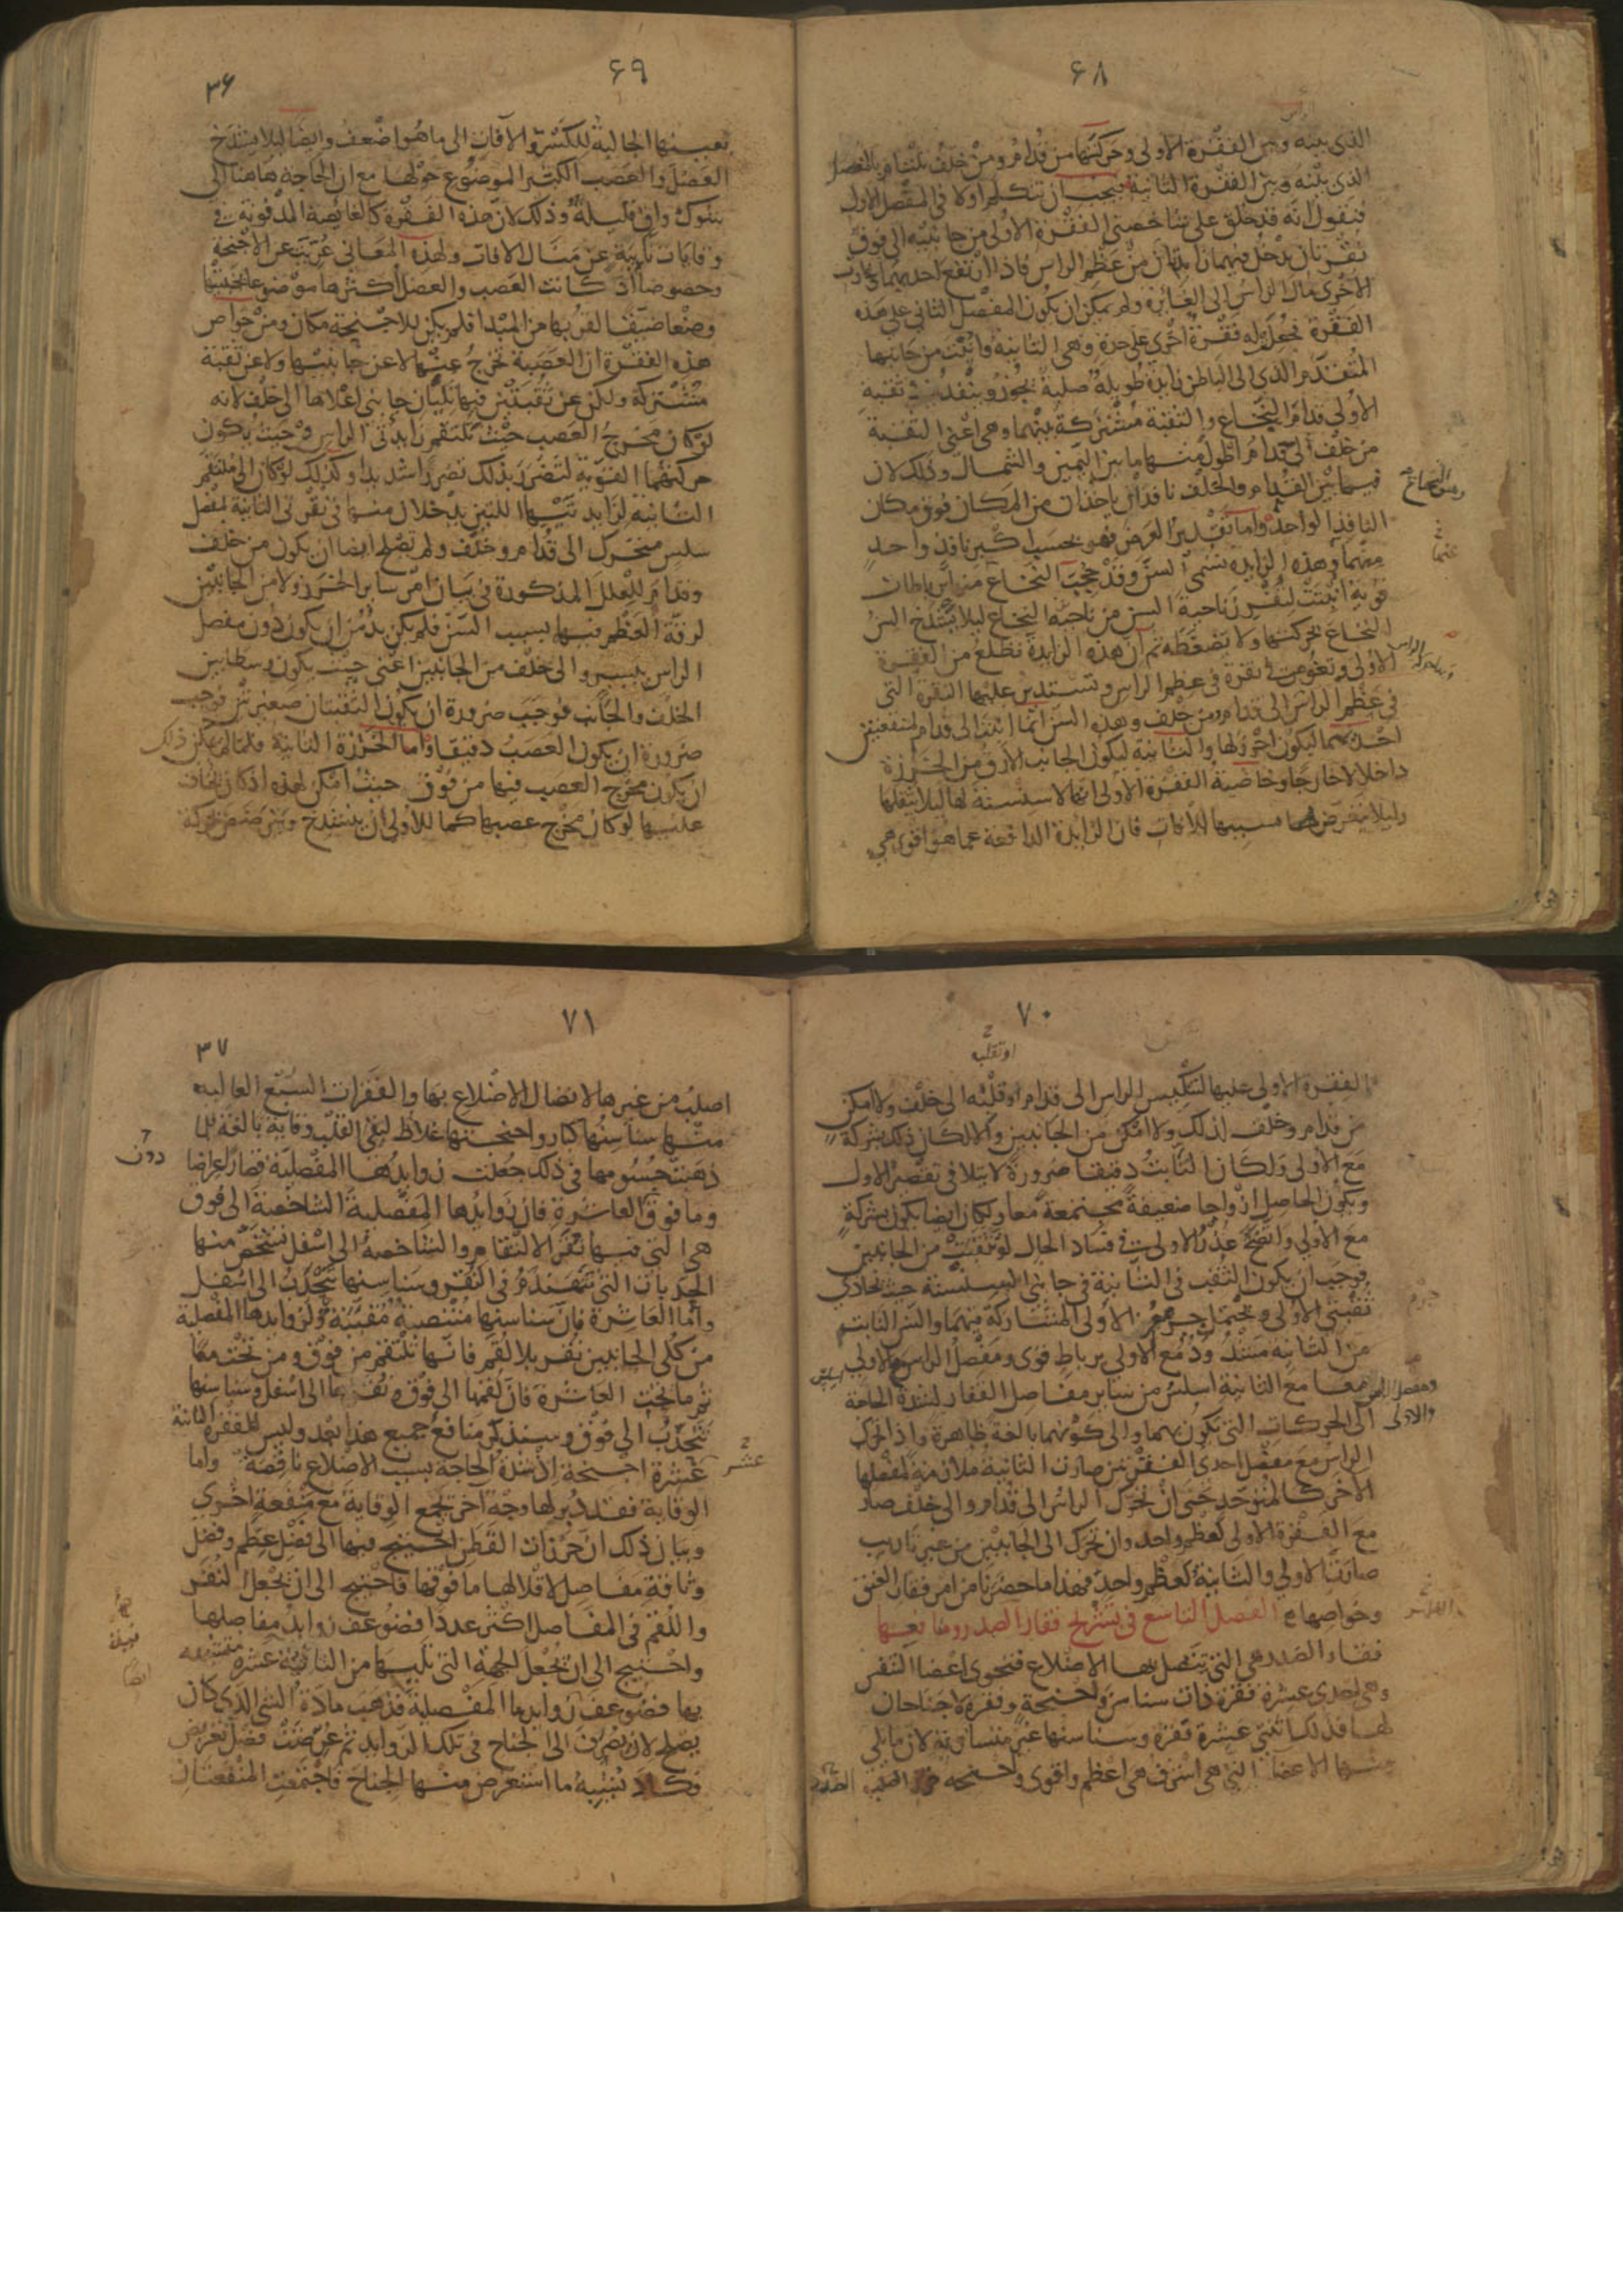 ٦٨
الذى بينه وبين الفقرة الاولى وحركتها من قدام ومن خلف تلتام بالمفصل
الذى بينه وبين الفقرة الثانية فيجب ان نتكلم اولا فى المفصل الاول
فنقول انه قد خلق على شاخصتى الفقرة الاولى من جانبيه الى فوق
نقرتان يدخل فيهما زايدتان من عظم الراس فاذا ارتفع احديهما وغارت
الاخرى مال الراس الى الغايرة ولم يمكن ان يكون المفصل الثانى على هذه
الفقرة فجعل له فقرة اخرى على حدة وهى الثانية وانبتت من جانبها
المتقدم الذى الى الباطن زايدة طويلة صلبة تجوز وتنفذ فى ثقبة
الاولى قدام النخاع والثقبة مشتركة بينهما وهى اعنى الثقبة
من خلف الى قدام اطول منها ما بين اليمين والشمال وذلك لان
فيما بين القدام والخلف نافذان ياخذان من المكان فوق مكان
النافذ الواحد واما تقدير العرض فهو بحسب اكبر نافذ واحد
منهما وهذه الزايدة تسمى السن وقد حجب النخاع عنها برباطات
قوية انبتت لتفرز ناحية السن من ناحية النخاع ليلا يشدخ السن
النخاع بحركتها ولا يضغطه ثم ان هذه الزايدة تطلع من الفقرة
الاولى وتغوص فى نقرة فى عظم الراس وتستدير عليها النقرة التى
فى عظم الراس الى قدام ومن خلف وهذه السن انما انبتت الى قدام لمنفعتين
احديهما ليكون احرز لها والثانية ليكون الجانب الارق من الخرزة
داخلا لا خارجا وخاصية الفقرة الاولى انها لا سنسنة لها ليلا يثقلها
وليلا يتعرض بسببها للافات فان الزايدة الدافعة عما هو اقوى هى
٦٩
٣٦
بعينها الجالبة للكسر والآفات الى ما هو اضعف وايضا ليلا يشدخ
العضل والعصب الكثير الموضوع حولها مع ان الحاجة هاهنا الى
شوك واق قليلة وذلك لان هذه الفقرة كالغايصة المدفونة فى
وقايات نايية عن منال الافات ولهذه المعانى عريت عن الاجنحة
وخصوصا اذ كانت العصب والعضل اكثرها موضوعا بجنبتها
وضعا ضيقا لقربها من المبدا فلم يكن للاجنحة مكان ومن خواص
هذه الفقرة ان العصبة تخرج عنها لا عن جانبيها ولا عن ثقبة
مشتركة ولكن عن ثقبتين فيها تليان جانبى اعلاها الى خلف لانه
لو كان مخرج العصب حيث تلتقم زايدتى الراس وحيث يكون
حركتهما القوية لتضرر بذلك تضررا شديدا وكذلك لو كان الى ملتقم
الثانية لزايدتيها اللتين يدخلان منها فى نقرتى الثانية بمفصل
سلس متحرك الى قدام وخلف ولم تصلح ايضا ان يكون من خلف
وقدام للعلل المذكورة فى بيان امر ساير الخرز ولا من الجانبين
لرقة العظم فيها بسبب السن فلم يكن بد من ان يكون دون مفصل
الراس بيسير والى خلف من الجانبين اعنى حيث يكون وسطا بين
الخلف والجانب فوجب ضرورة ان يكون الثقبتان صغيرتين فوجب
ضرورة ان يكون العصب دقيقا واما الخرزة الثانية فلما لم يمكن ذلك
ان يكون مخرج العصب فيها من فوق حيث امكن لهذه اذ كان يخاف
عليها لو كان مخرج عصبها كما للاولى ان ينشدخ ويترضض بحركة
٧٠
الفقرة الاولى عليها لتنكيس الراس الى قدام او قلبه الى خلف ولا امكن
من قدام وخلف لذلك ولا امكن من الجانبين والا لكان ذلك شركة
مع الاولى ولكان النابت دقيقا ضرورة لا يتلافى تقصير الاول
ويكون الحاصل ازواجا ضعيفة مجتمعة معا ولكان ايضا يكون بشركة
مع الاولى واتضح عذر الاولى فى فساد الحال لو تثقبت من الجانبين
فوجب ان يكون الثقب فى الثانية فى جانبى السنسنة حيث تحاذى
ثقبتى الاولى ويحتمل جرم الاولى المشاركة فيهما والسن النابت
من الثانية مشدود مع الاولى برباط قوى ومفصل الراس والاولى
معا مع الثانية اسلس من ساير مفاصل الفقار لشدة الحاجة
الى الحركات التى تكون بهما والى كونهما بالغة ظاهرة واذا تحرك
الراس مع مفصل احدى الفقرتين صارت الثانية ملازمة لمفصلها
الاخر كالمتوحد حتى ان تحرك الراس الى قدام والى خلف صار
مع الفقرة الاولى كعظم واحد وان تحرك الى الجانبين من غير تاريب
صارت الاولى والثانية كعظم واحد فهذا ما حضرنا من امر فقار العنق
وخواصها الفصل التاسع فى تشريح فقار الصدر ومنافعها
فقار الصدر هى التى تتصل بها الاضلاع فتحوى اعضا التنفس
وهى احدى عشرة فقرة ذات سناسن واجنحة وفقرة لا جناحان
لها فذلك اثنتى عشرة فقرة وسناسنها غير متساوية لان ما يلى
منها الاعضا التى هى اشرف هى اعظم واقوى واجنحة خرز الصلب
٧١
٣٧
اصلب من غيرها لاتصال الاضلاع بها والفقرات السبع العالية
منها سناسنها كبار واجنحتها غلاظ لتقى القلب وقاية بالغة فلما
ذهبت جسومها فى ذلك جعلت زوايدها المفصلية قصارا عراضا
وما فوق العاشرة فان زوايدها المفصلية الشاخصة الى فوق
هى التى فيها نقر الالتقام والشاخصة الى اسفل تشخص منها
الحدبات التى تتهندم فى النقر وسناسنها تتحدب الى اسفل
واما العاشرة فان سناسنها منتصبة مقببة ولزوايدها المفصلية
من كلى الجانبين نقر بلا لقم فانها تلتقم من فوق ومن تحت معا
ثم ما تحت العاشرة فان لقمها الى فوق ونقرها الى اسفل وسناسنها
تتحدب الى فوق وسنذكر منافع جميع هذا بعد وليس للفقرة الثانية
عشرة اجنحة اذ شدة الحاجة بسبب الاضلاع ناقصة واما
الوقاية فقد دبر لها وجه اخر يجمع الوقاية مع منفعة اخرى
وبيان ذلك ان خرزات القطن احتيج فيها الى فضل عظم وفضل
وثاقة مفاصل لاقلالها ما فوقها فاحتيج الى ان يجعل النقر
واللقم فى المفاصل اكثر عددا فضوعف زوايد مفاصلها
واحتيج الى ان تجعل الجهة التى تليها من الثانية عشرة متشبهة
بها فضوعف زوايدها المفصلية فذهب مادة الشى الذى كان
يصلح لان يصرف الى الجناح فى تلك الزوايد ثم عرضت فضل تعريض
فكاد تشبه ما استعرض منها الجناح فاجتمعت المنفعتان